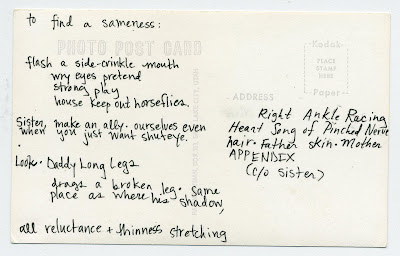 to find a sameness:
PHOTO POST CARD
Kodak
PLACE
STAMP
HERE
Paper
flash a side-crinkle mouth
wry eyes pretend
strong play
house keep out horseflies.
ADDRESS
Sister, make an ally. ourselves even
when you just want shuteye.
Look. Daddy Long Legs
drags a broken leg. Same
place as where his shadow,
all reluctance + thinness stretching
Right Ankle Racing
Heart Song of Pinched Nerve
hair. Father skin. Mother
APPENDIX
(c/o sister)